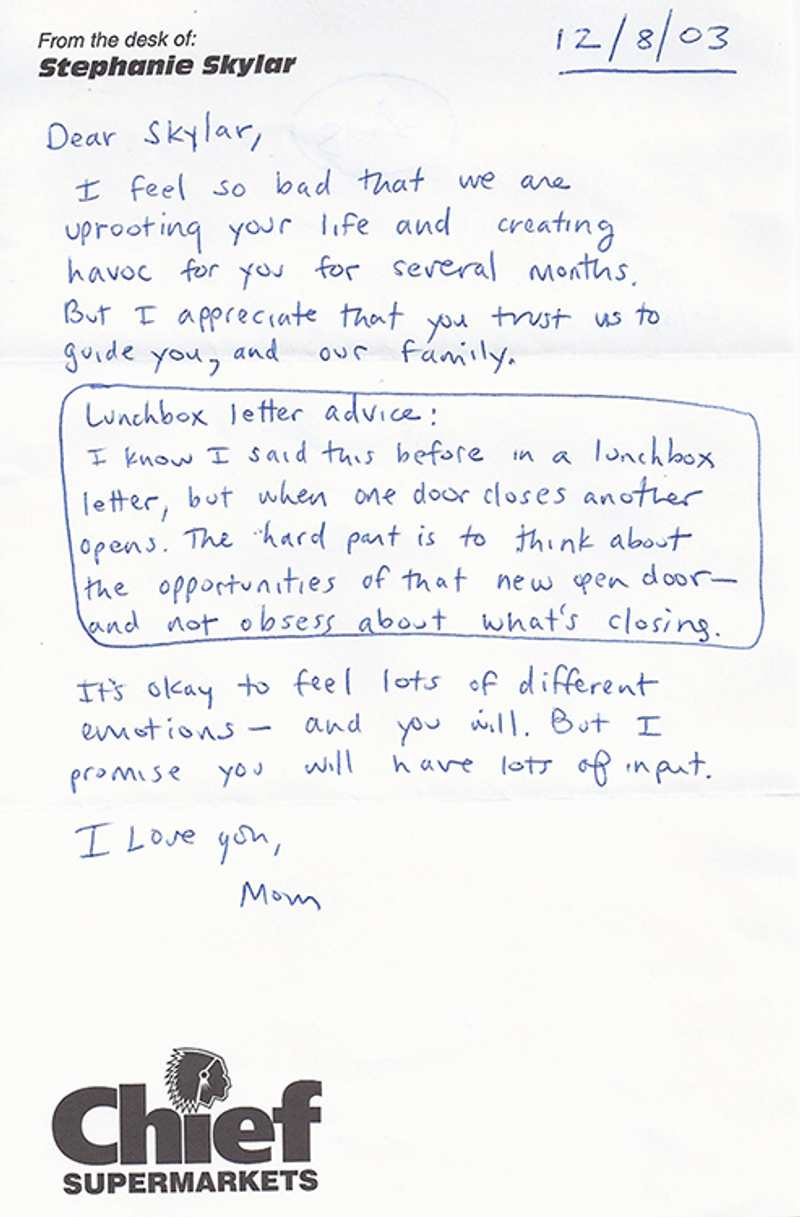 From the desk of:
Stephanie Skylar
12/8/03
Dear Skylar,
I feel so bad that we are
uprooting your life and creating
havoc for you for several months.
But I appreciate that you trust us to
guide you, and our family.
Lunchbox letter advice:
I know I said this before in a lunchbox
letter, but when one door closes another
opens. The hard part is to think about
the opportunities of that new open door—
and not obsess about what's closing.
It's okay to feel lots of different
emotions — and you will. But I
promise you will have lots of input.
I Love you,
Mom
Chief
SUPERMARKETS